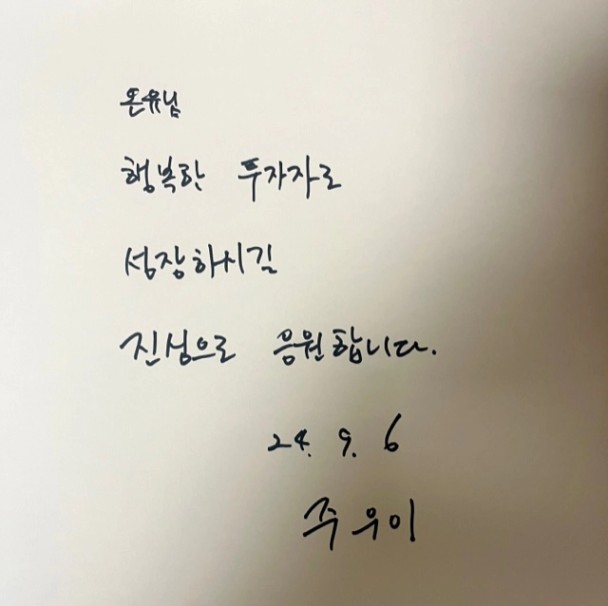 온유님
행복한 투자자로
성장하시길
진심으로 응원합니다.
24. 9. 6
주우이